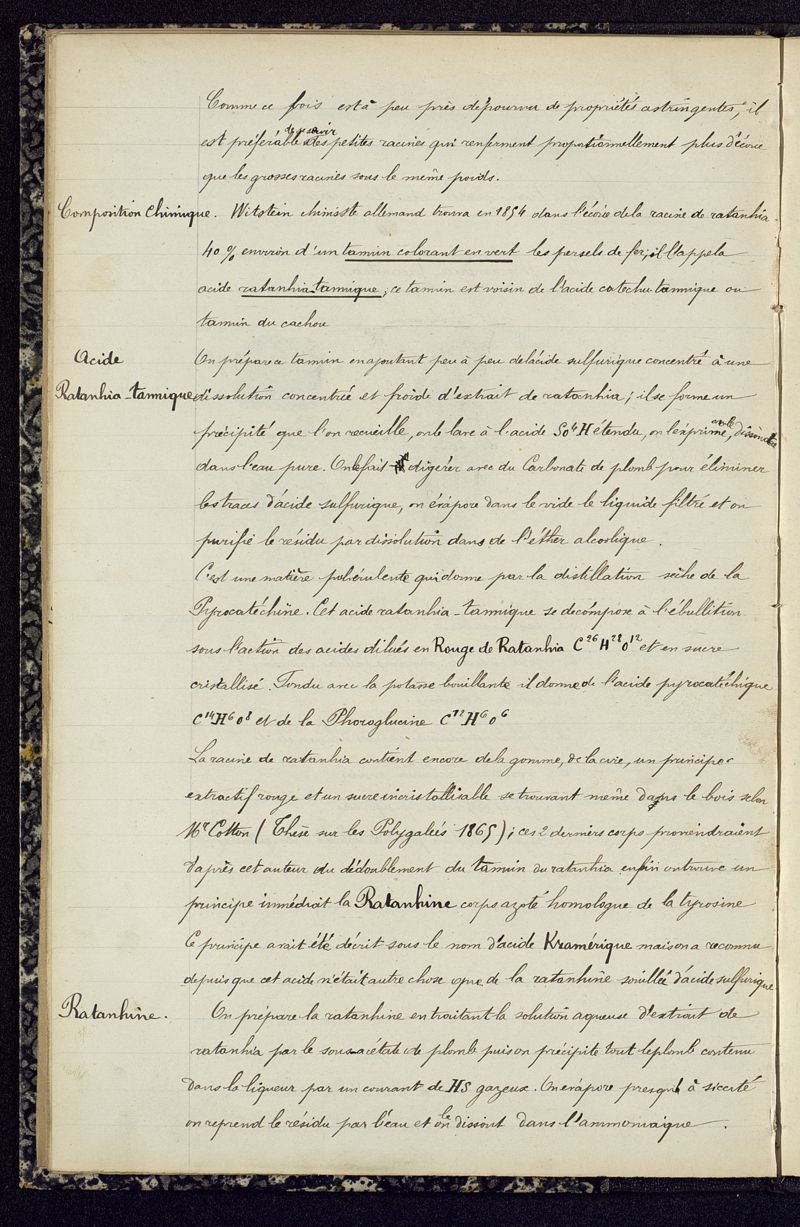 Comme ce bois est à peu près dépourvu de propriétés astringentes, il
est préférable de se servir des petites racines qui renferment proportionnellement plus d'écorce
que les grosses racines sous le même poids.
Composition Chimique. Witstein chimiste allemand trouva en 1854 dans l'écorce de la racine de ratanhia
40 % environ d'un tannin colorant en vert les persels de fer; il l'appela
acide ratanhia-tannique; ce tannin est voisin de l'acide catechu-tannique ou
tannin du cachou
Acide On prépare ce tannin en ajoutant peu à peu de l'acide sulfurique concentré à une
Ratanhia-tannique dissolution concentrée et froide d'extrait de ratanhia; il se forme un
précipité que l'on recueille, on le lave à l'acide SO⁴H étendu, on l'exprime, on le dissout
dans l'eau pure. On le fait digérer avec du Carbonate de plomb pour éliminer
les traces d'acide sulfurique, on évapore dans le vide le liquide filtré et on
purifie le résidu par dissolution dans de l'éther alcoolique.
C'est une matière pulvérulente qui donne par la distillation sèche de la
Pyrocatéchine. Cet acide ratanhia-tannique se décompose à l'ébullition
sous l'action des acides dilués en Rouge de Ratanhia C²⁶H²⁸O¹² et en sucre
cristallisé. Fondu avec la potasse bouillante il donne de l'acide pyrocatéchique
C¹⁴H⁶O⁸ et de la Phoroglucine C¹²H⁶O⁶
La racine de ratanhia contient encore de la gomme, de la cire, un principe
extractif rouge et un sucre incristallisable se trouvant même dans le bois selon
Mr Cotton (Thèse sur les Polygalées 1865); ces 2 derniers corps proviendraient
d'après cet auteur du dédoublement du tannin du ratanhia enfin on trouve un
principe immédiat la Ratanhine corps azoté homologue de la tyrosine
Ce principe avait été décrit sous le nom d'acide Kramérique mais on a reconnu
depuis que cet acide n'était autre chose que de la ratanhine souillée d'acide sulfurique
Ratanhine. On prépare la ratanhine en traitant la solution aqueuse d'extrait de
ratanhia par le sous-acétate de plomb puis on précipite tout le plomb contenu
dans la liqueur par un courant de HS gazeux. On évapore presque à siccité
on reprend le résidu par l'eau et on le dissout dans l'ammoniaque.